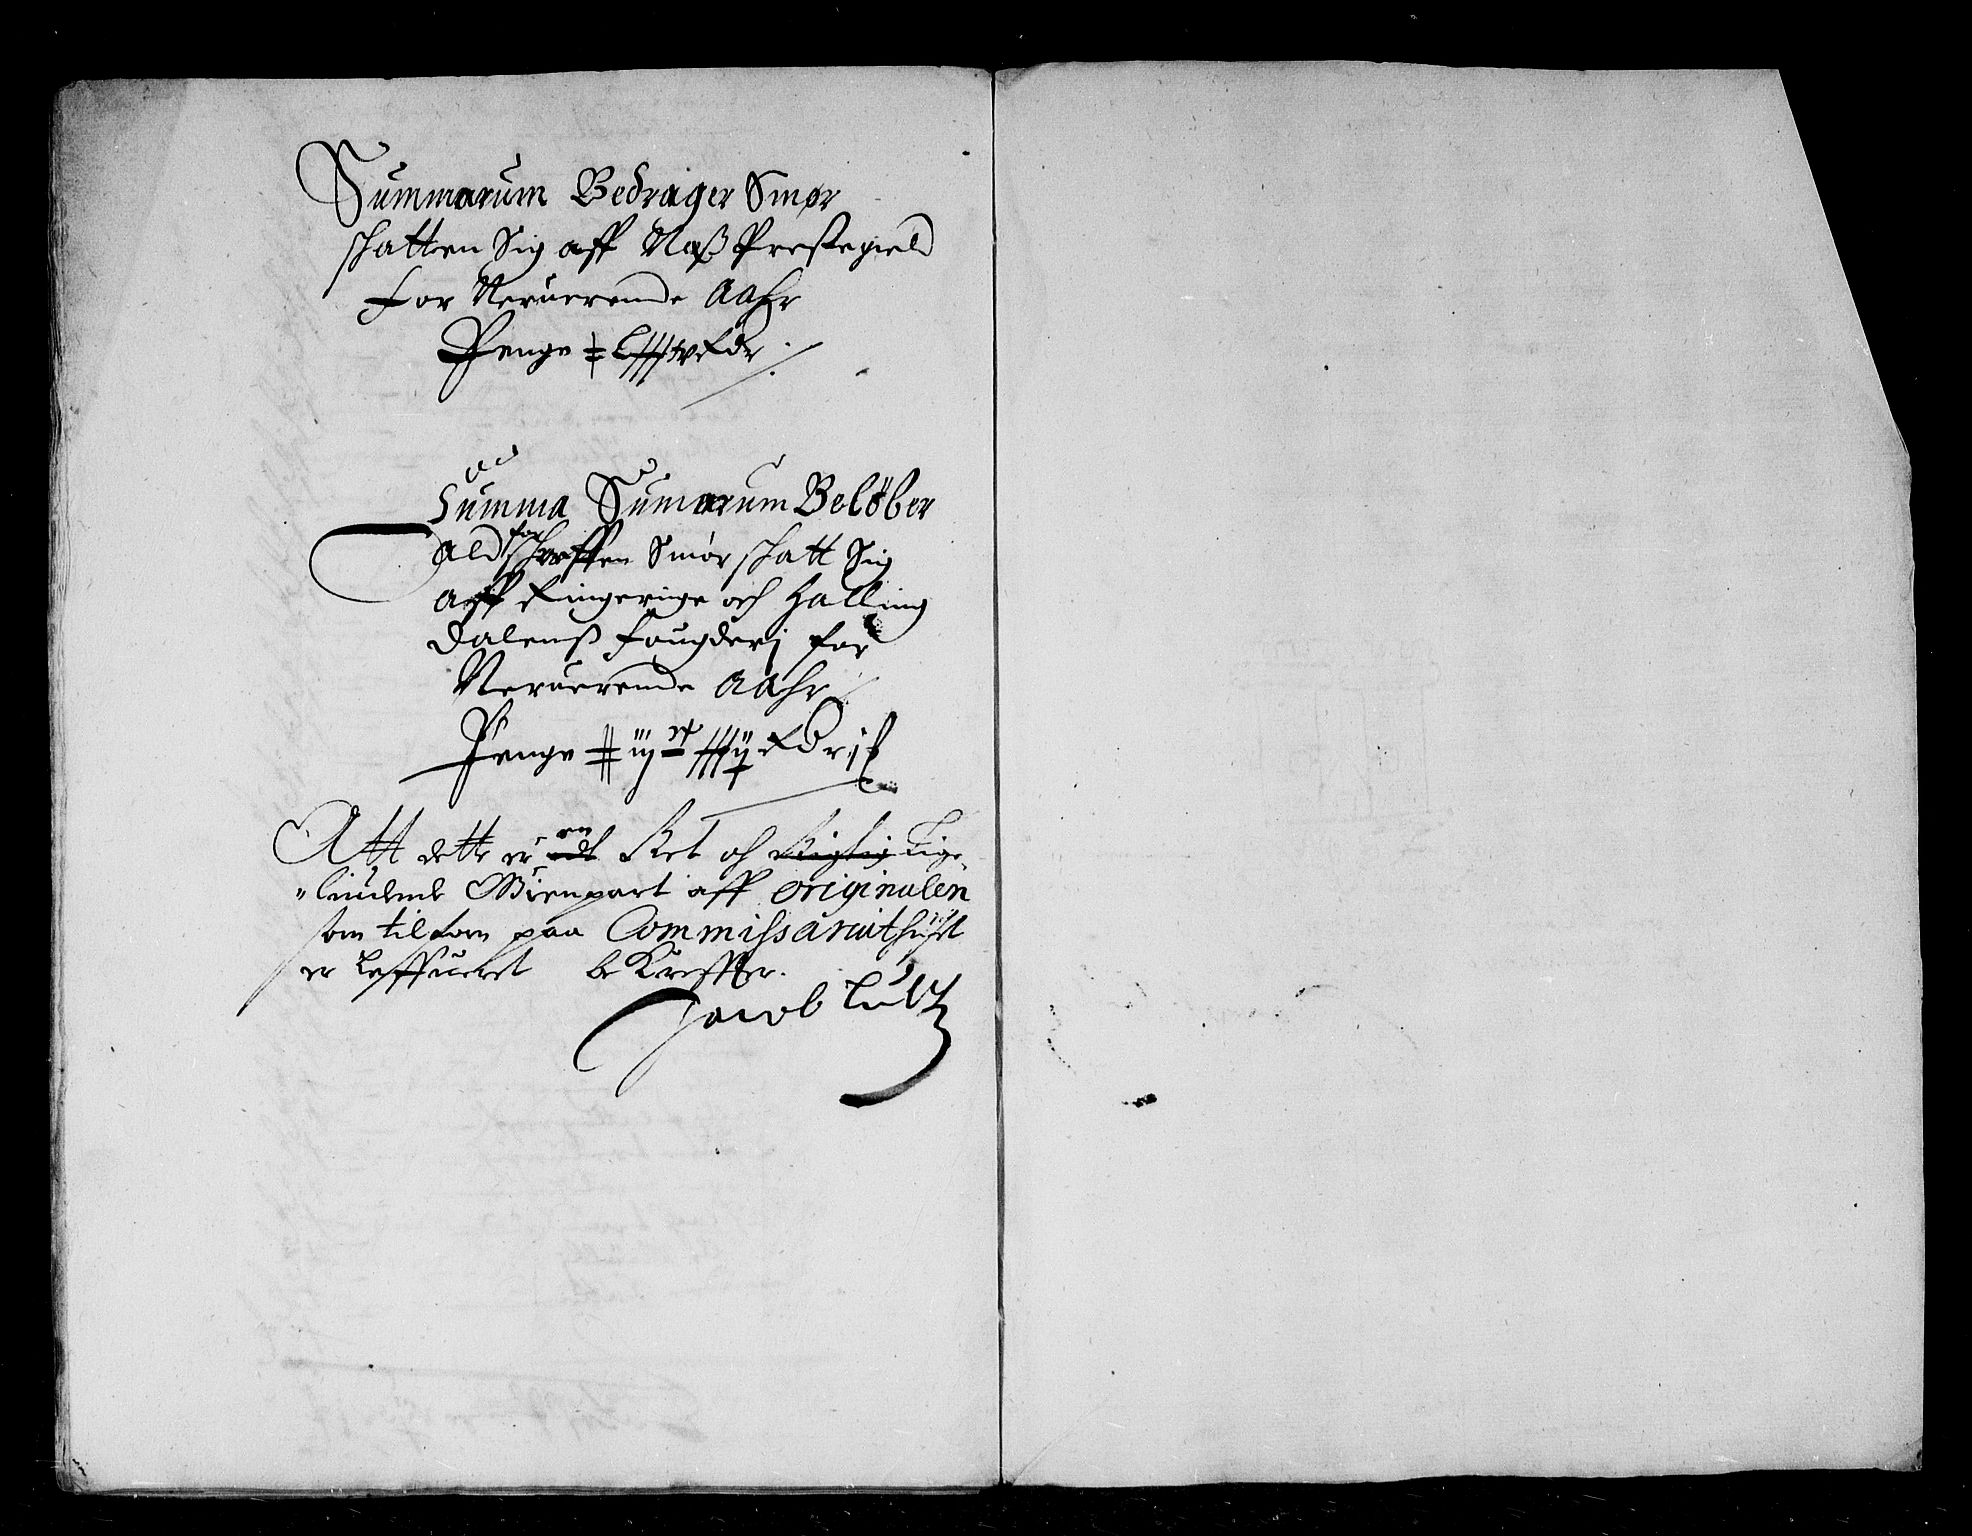 Summarum Bedrager Smør
schatten Sig aff Næß Prestegield
for Neruerende Aahr
Penge
Summa Sumarum Beløber
Ald for schreffen Smør schatt Sig
aff Ringerige och Halling
dalenß fougderj for
Neruerende Aahr
Penge
Att dette er en Ret oc Rigtig Lige-
"liudende Gienpart aff originalen
som tilforn paa Commissariathuset
er leffueret bekreffter.
Jacob Lutz